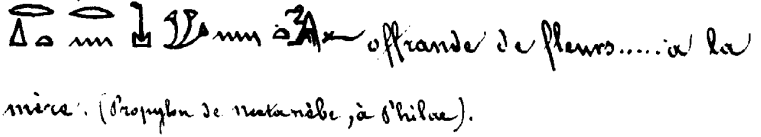 offrande de fleurs.....à la
mère. (Propylon de nectanèbe, à Philae).